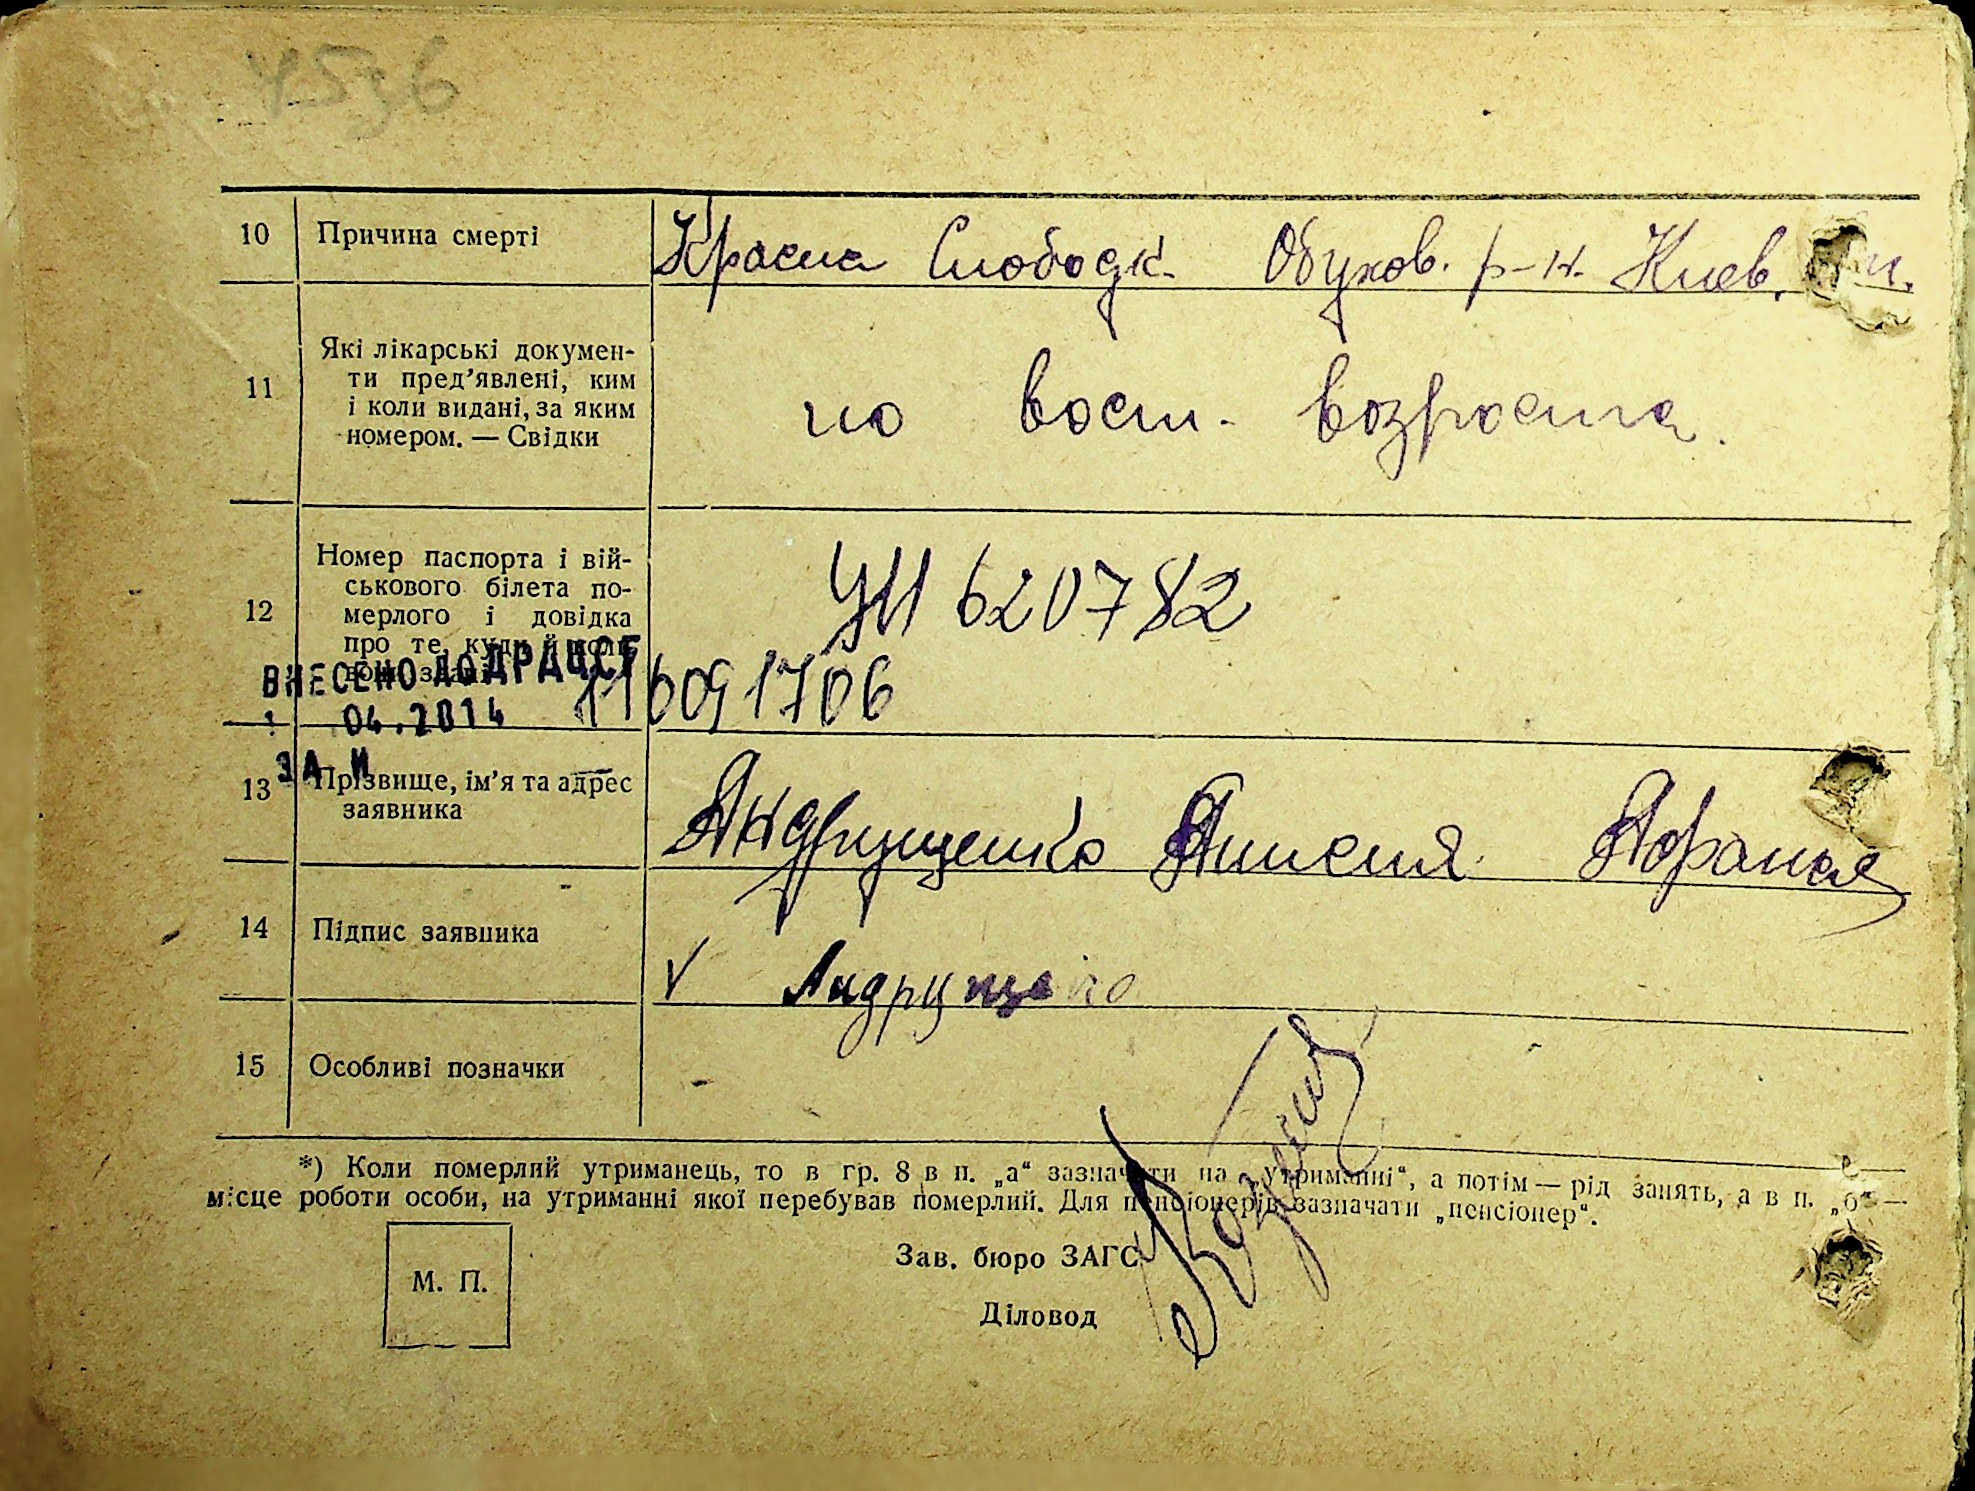 4536
10 Причина смерті Красна Слободк. Обухов. р-н. Киев.
11 Які лікарські докумен-
ти пред’явлені, ким
і коли видані, за яким
номером. — Свідки
по восст. возраста.
12 Номер паспорта і вій-
ськового білета по-
мерлого і довідка
про те, куди й коли
вони здані
УМ 620782
ВНЕСЕНО ДО ДРАЦСГ
04.2014
116091706
ЗА И
13 Прізвище, ім’я та адрес
заявника
Андрущенко Анисия Афанас
14 Підпис заявника
V Андрущенко
15 Особливі позначки
*) Коли померлий утриманець, то в гр. 8 в п. „а“ зазначати на „утриманні“, а потім — рід занять, а в п. „б“ —
місце роботи особи, на утриманні якої перебував померлий. Для пенсіонерів зазначати „пенсіонер“.
М. П.
Зав. бюро ЗАГС
Діловод